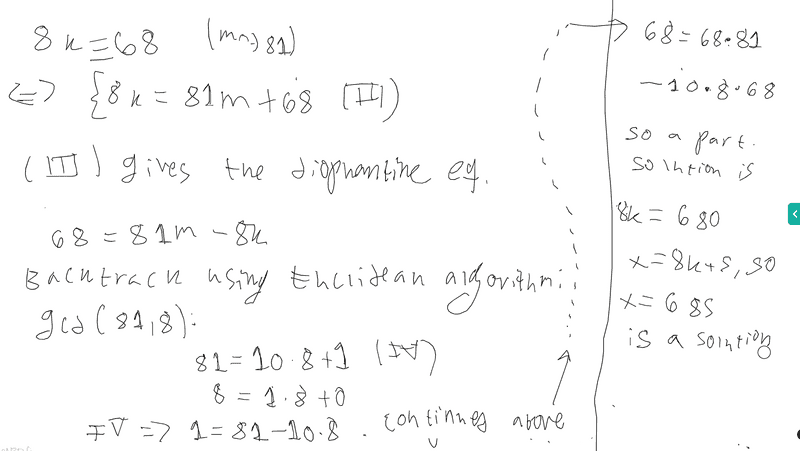 8k ≡ 68 (mod 81)
<=> {8k = 81m + 68 (III)
(III) gives the diophantine eq.
68 = 81m - 8k
Backtrack using Euclidean algorithm:
gcd(81,8):
81 = 10·8+1 (IV)
8 = 1·8+0
IV => 1 = 81-10·8. continues above
68 = 68·81
-10·8·68
so a part.
solution is
8k = 680
x=8k+5, so
x= 685
is a solution